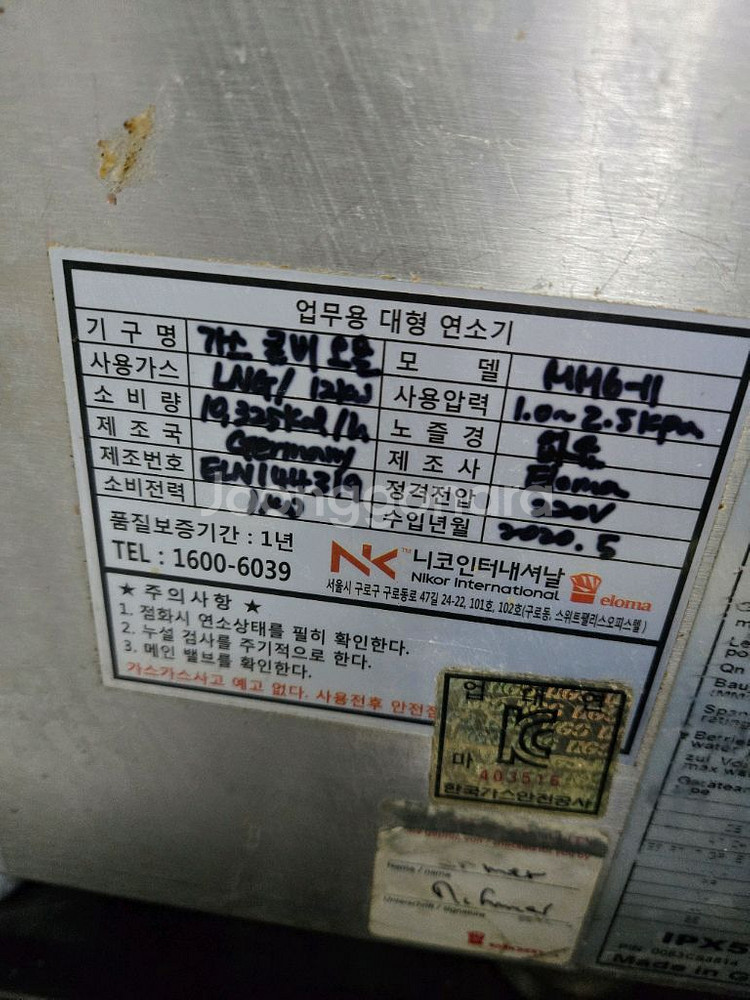 업무용 대형 연소기
기 구 명 가스 콤비 오븐 모 델 MM6-11
사용가스 LNG/ 12kw 사용압력 1.0~2.5kpa
소 비 량 10,325kcal/h 노 즐 경 없음
제 조 국 Germany 제 조 사 Eloma
제조번호 ELN144319 정격전압 220V
소비전력 수입년월 2020.5
품질보증기간 : 1년
TEL : 1600-6039
NK™ 니코인터내셔날
Nikor International
eloma
서울시 구로구 구로동로 47길 24-22, 101호, 102호(구로동, 스위트팰리스오피스텔)
★ 주 의 사 항 ★
1. 점화시 연소상태를 필히 확인한다.
2. 누설 검사를 주기적으로 한다.
3. 메인 밸브를 확인한다.
가스가스사고 예고 없다. 사용전후 안전점
Joonggonara
업 대 연
마
403516
한국가스안전공사
Name / name
Unterschrift / signature
IPX5
Made in G